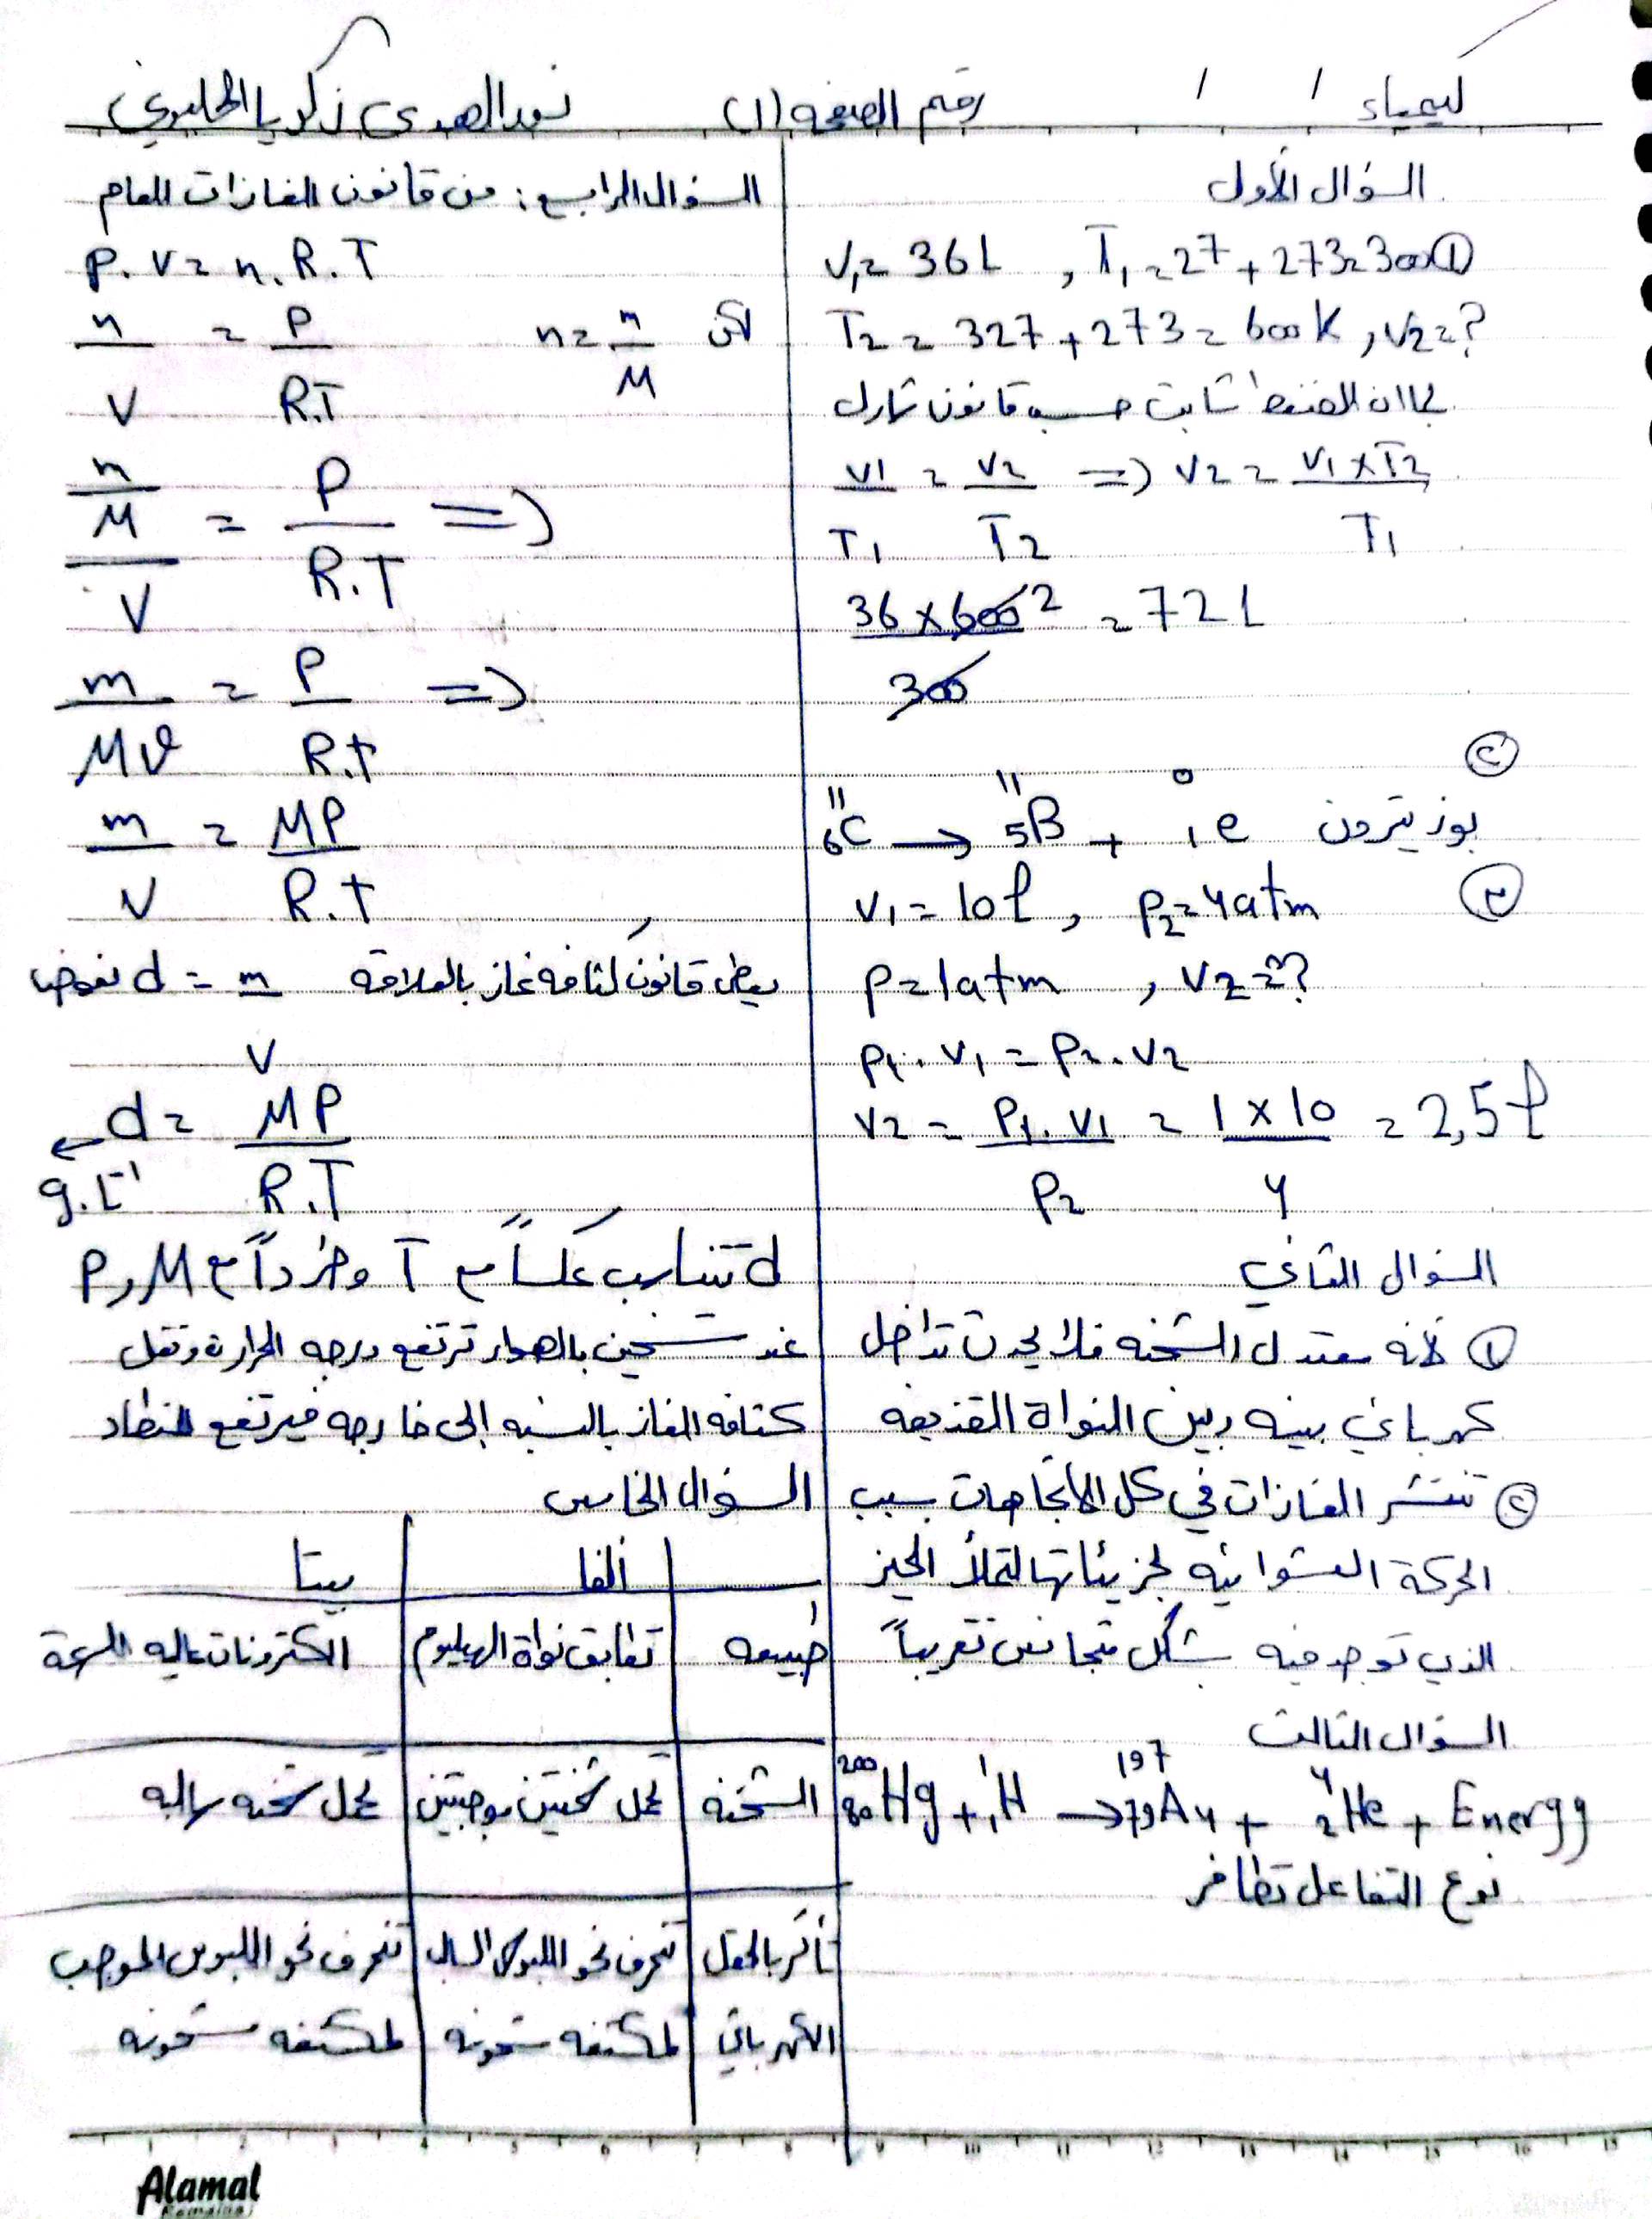 كيمياء / / رقم الصفحة (1) نور الهدى زكريا
السؤال الأول
① V₁ = 36 L , T₁ = 27 + 273 = 300
T₂ = 327 + 273 = 600 K , V₂ = ?
بما ان الضغط ثابت حسب قانون شارل
V1/T₁ = V₂/T₂ => V₂ = V₁ × T₂/T₁
36 × 600 ²/300 = 72 L
②
¹¹₆C → ¹¹₅B + ⁰₁e بوزيترون
③ V₁ = 10 ℓ , P₂ = 4 atm
P = 1 atm , V₂ = ?
P₁ . V₁ = P₂ . V₂
V₂ = P₁ . V₁/P₂ = 1 × 10/4 = 2,5 ℓ
السؤال الثاني
① لأنه معتدل الشحنه فلا يحدث تداخل
كهربائي بينه وبين النواة القذيفه
② تنتشر الغازات في كل الاتجاهات بسبب
الحركة العشوائيه لجزيئاتها لتملأ الحيز
الذي توجد فيه بشكل متجانس تقريباً
السؤال الثالث
²⁰⁰₈₀Hg + ¹₁H → ¹⁹⁷₇₉Au + ⁴₂He + Energy
نوع التفاعل تطافر
السؤال الرابع : من قانون الغازات العام
P . V = n . R . T
n/V = P/R.T لكن n = m/M
m/M/V = P/R.T =>
m/MV = P/R.T =>
m/V = MP/R.T
يعطى قانون كثافه غاز بالعلاقه d = m/V نعوض
d = MP/R.T
← g.L⁻¹
d تتناسب عكساً مع T وطرداً مع M و P
عند تسخين بالهواء ترتفع درجه الحرارة وتقل
كثافه الغاز بالنسبه إلى خارجه فيرتفع المنطاد
السؤال الخامس
ألفا بيتا
طبيعه تطابق نواة الهيليوم الكترونات عاليه السرعة
الشحنه تحمل شحنتين موجبتين تحمل شحنه سالبه
تأثر بالحقل تنحرف نحو اللبوس السالب تنحرف نحو اللبوس الموجب
الكهربائي لمكثفه مشحونه لمكثفه مشحونه
1 2 3 4 5 6 7 8 9 10 11 12 13 14 15 16
Alamal